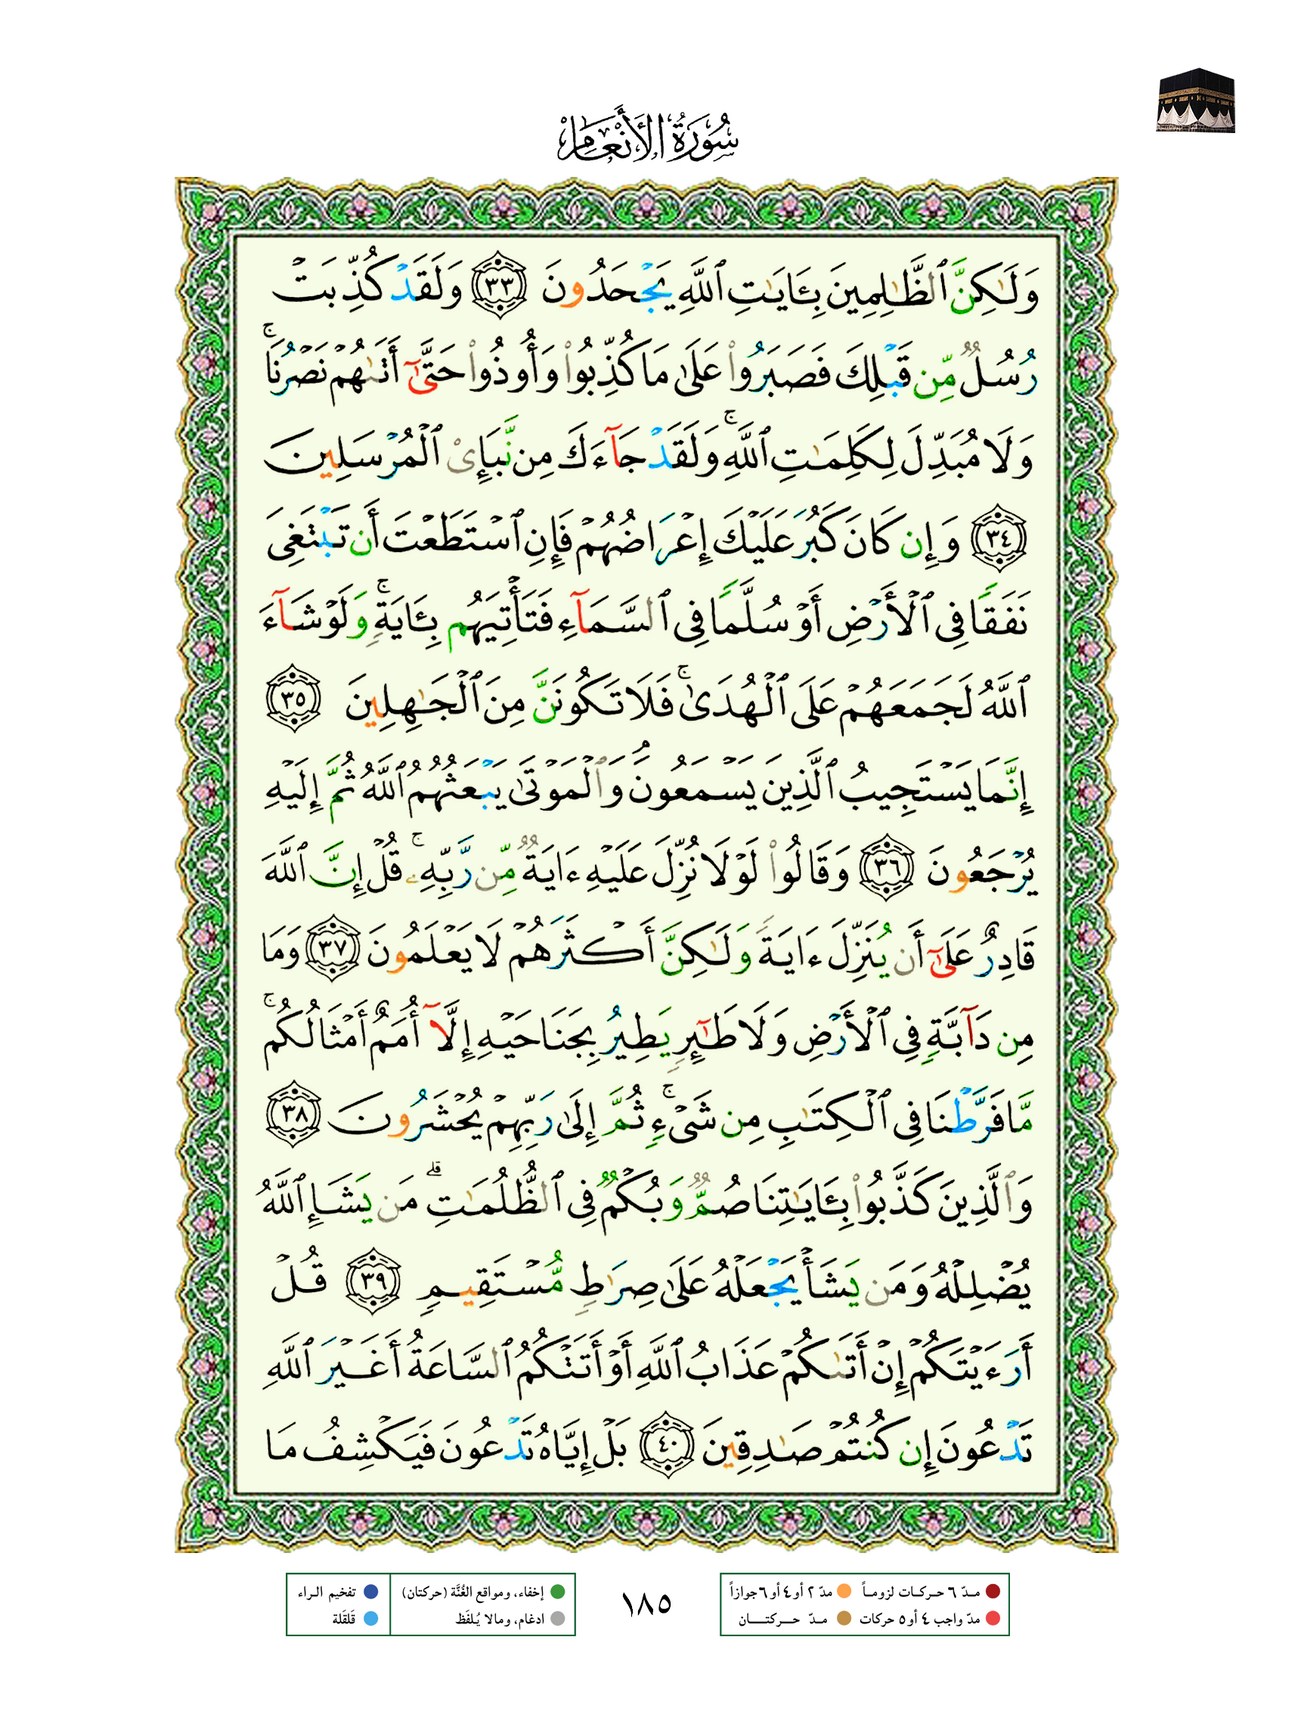 سُورَةُ الأَنْعَامِ
وَلَـٰكِنَّ ٱلظَّـٰلِمِينَ بِـَٔايَـٰتِ ٱللَّهِ يَجْحَدُونَ ٣٣ وَلَقَدْ كُذِّبَتْ
رُسُلٌ مِّن قَبْلِكَ فَصَبَرُوا۟ عَلَىٰ مَا كُذِّبُوا۟ وَأُوذُوا۟ حَتَّىٰٓ أَتَىٰهُمْ نَصْرُنَا ۚ
وَلَا مُبَدِّلَ لِكَلِمَـٰتِ ٱللَّهِ ۚ وَلَقَدْ جَآءَكَ مِن نَّبَإِى۟ ٱلْمُرْسَلِينَ
٣٤ وَإِن كَانَ كَبُرَ عَلَيْكَ إِعْرَاضُهُمْ فَإِنِ ٱسْتَطَعْتَ أَن تَبْتَغِىَ
نَفَقًا فِى ٱلْأَرْضِ أَوْ سُلَّمًا فِى ٱلسَّمَآءِ فَتَأْتِيَهُم بِـَٔايَةٍ ۚ وَلَوْ شَآءَ
ٱللَّهُ لَجَمَعَهُمْ عَلَى ٱلْهُدَىٰ ۚ فَلَا تَكُونَنَّ مِنَ ٱلْجَـٰهِلِينَ ٣٥
إِنَّمَا يَسْتَجِيبُ ٱلَّذِينَ يَسْمَعُونَ ۘ وَٱلْمَوْتَىٰ يَبْعَثُهُمُ ٱللَّهُ ثُمَّ إِلَيْهِ
يُرْجَعُونَ ٣٦ وَقَالُوا۟ لَوْلَا نُزِّلَ عَلَيْهِ ءَايَةٌ مِّن رَّبِّهِۦ ۚ قُلْ إِنَّ ٱللَّهَ
قَادِرٌ عَلَىٰٓ أَن يُنَزِّلَ ءَايَةً وَلَـٰكِنَّ أَكْثَرَهُمْ لَا يَعْلَمُونَ ٣٧ وَمَا
مِن دَآبَّةٍ فِى ٱلْأَرْضِ وَلَا طَـٰٓئِرٍ يَطِيرُ بِجَنَاحَيْهِ إِلَّآ أُمَمٌ أَمْثَالُكُم ۚ
مَّا فَرَّطْنَا فِى ٱلْكِتَـٰبِ مِن شَىْءٍ ۚ ثُمَّ إِلَىٰ رَبِّهِمْ يُحْشَرُونَ ٣٨
وَٱلَّذِينَ كَذَّبُوا۟ بِـَٔايَـٰتِنَا صُمٌّ وَبُكْمٌ فِى ٱلظُّلُمَـٰتِ ۗ مَن يَشَإِ ٱللَّهُ
يُضْلِلْهُ وَمَن يَشَأْ يَجْعَلْهُ عَلَىٰ صِرَٰطٍ مُّسْتَقِيمٍ ٣٩ قُلْ
أَرَءَيْتَكُمْ إِنْ أَتَىٰكُمْ عَذَابُ ٱللَّهِ أَوْ أَتَتْكُمُ ٱلسَّاعَةُ أَغَيْرَ ٱللَّهِ
تَدْعُونَ إِن كُنتُمْ صَـٰدِقِينَ ٤٠ بَلْ إِيَّاهُ تَدْعُونَ فَيَكْشِفُ مَا
مـدّ ٦ حـركـات لزومـاً مدّ ٢ أو٤ أو٦ جوازاً
مدّ واجب ٤ أو٥ حركات مـدّ حـركتـان
١٨٥
إخفاء، ومواقع الغُنَّة (حركتان) تفخيم الـراء
ادغام، ومالا يُـلفَظ قَلقَلة